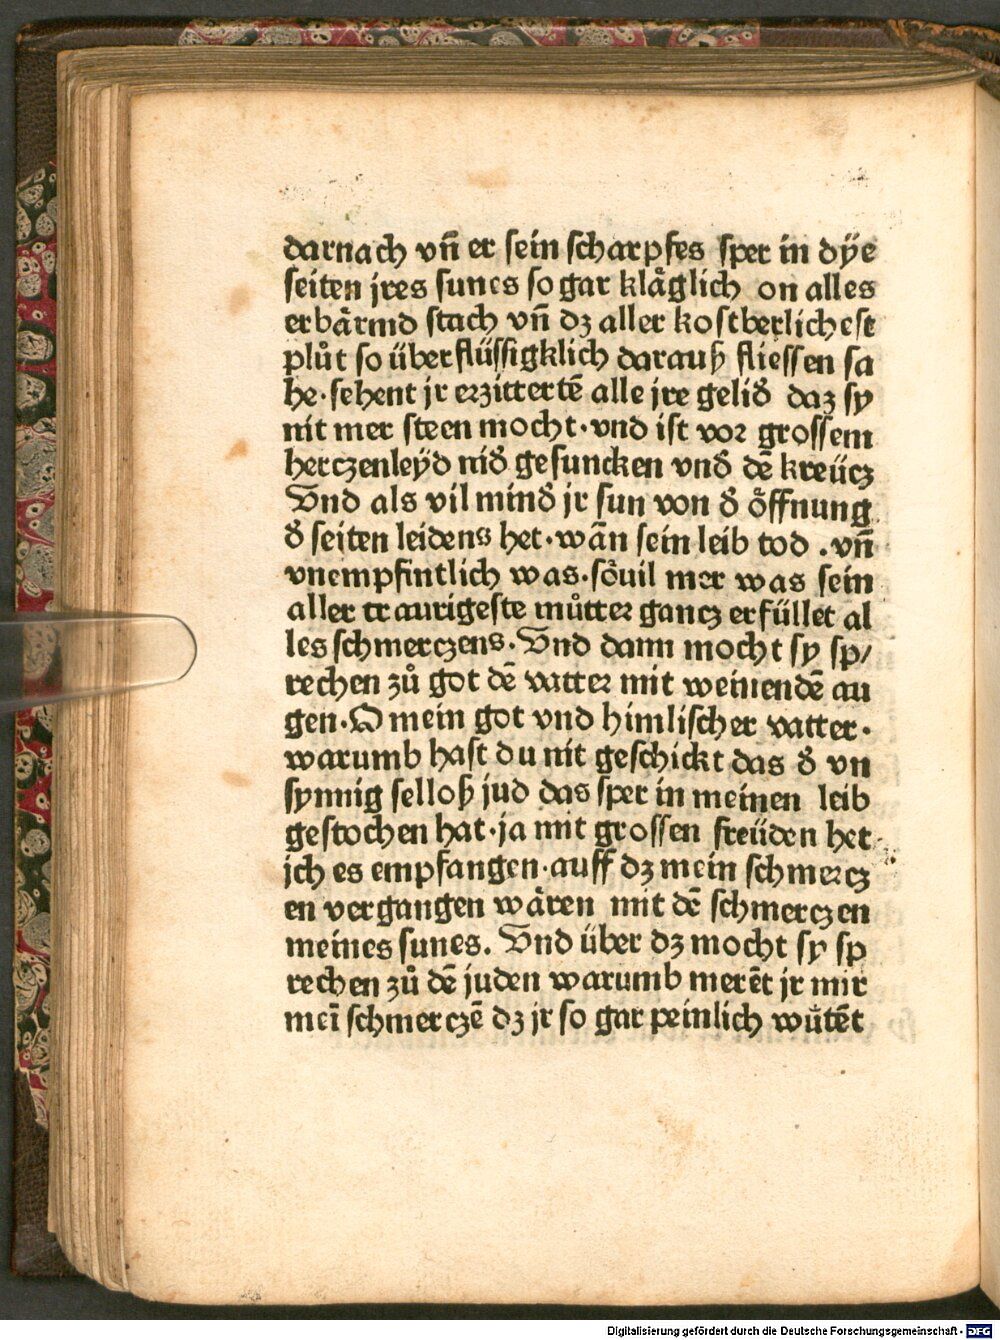 darnach vn̄ er sein scharpfes sper in dÿe
seiten jres sunes so gar klåglich on alles
erbårmd stach vn̄ dꝫ aller kostberlichest
plůt so überflüssigklich darauß fliessen sa
he·sehent jr erzittertē alle jre gelið daz sy
nit mer steen mocht·vnd ist vor grossem
herczenleÿd nið gesuncken vnð dē kreücz
Vnd als vil minð jr sun von ð öffnung
ð seiten leidens het·wān sein leib tod .vn̄
vnempfintlich was·sòuil mer was sein
aller traurigeste můtter gancz erfüllet al
les schmerczens·Vnd dann mocht sy sp/
rechen zů got dē vatter mit weinendē au
gen·O mein got vnd himlischer vatter·
warumb hast du nit geschickt das ð vn
synnig selloß jud das sper in meinen leib
gestochen hat·ja mit grossen freüden het
ich es empfangen·auff dꝫ mein schmercz
en vergangen wåren mit dē schmerczen
meines sunes. Vnd über dꝫ mocht sy sp
rechen zů dē juden warumb merēt jr mir
meī schmerczē dꝫ jr so gar peinlich wůtēt
Digitalisierung gefördert durch die Deutsche Forschungsgemeinschaft - DFG